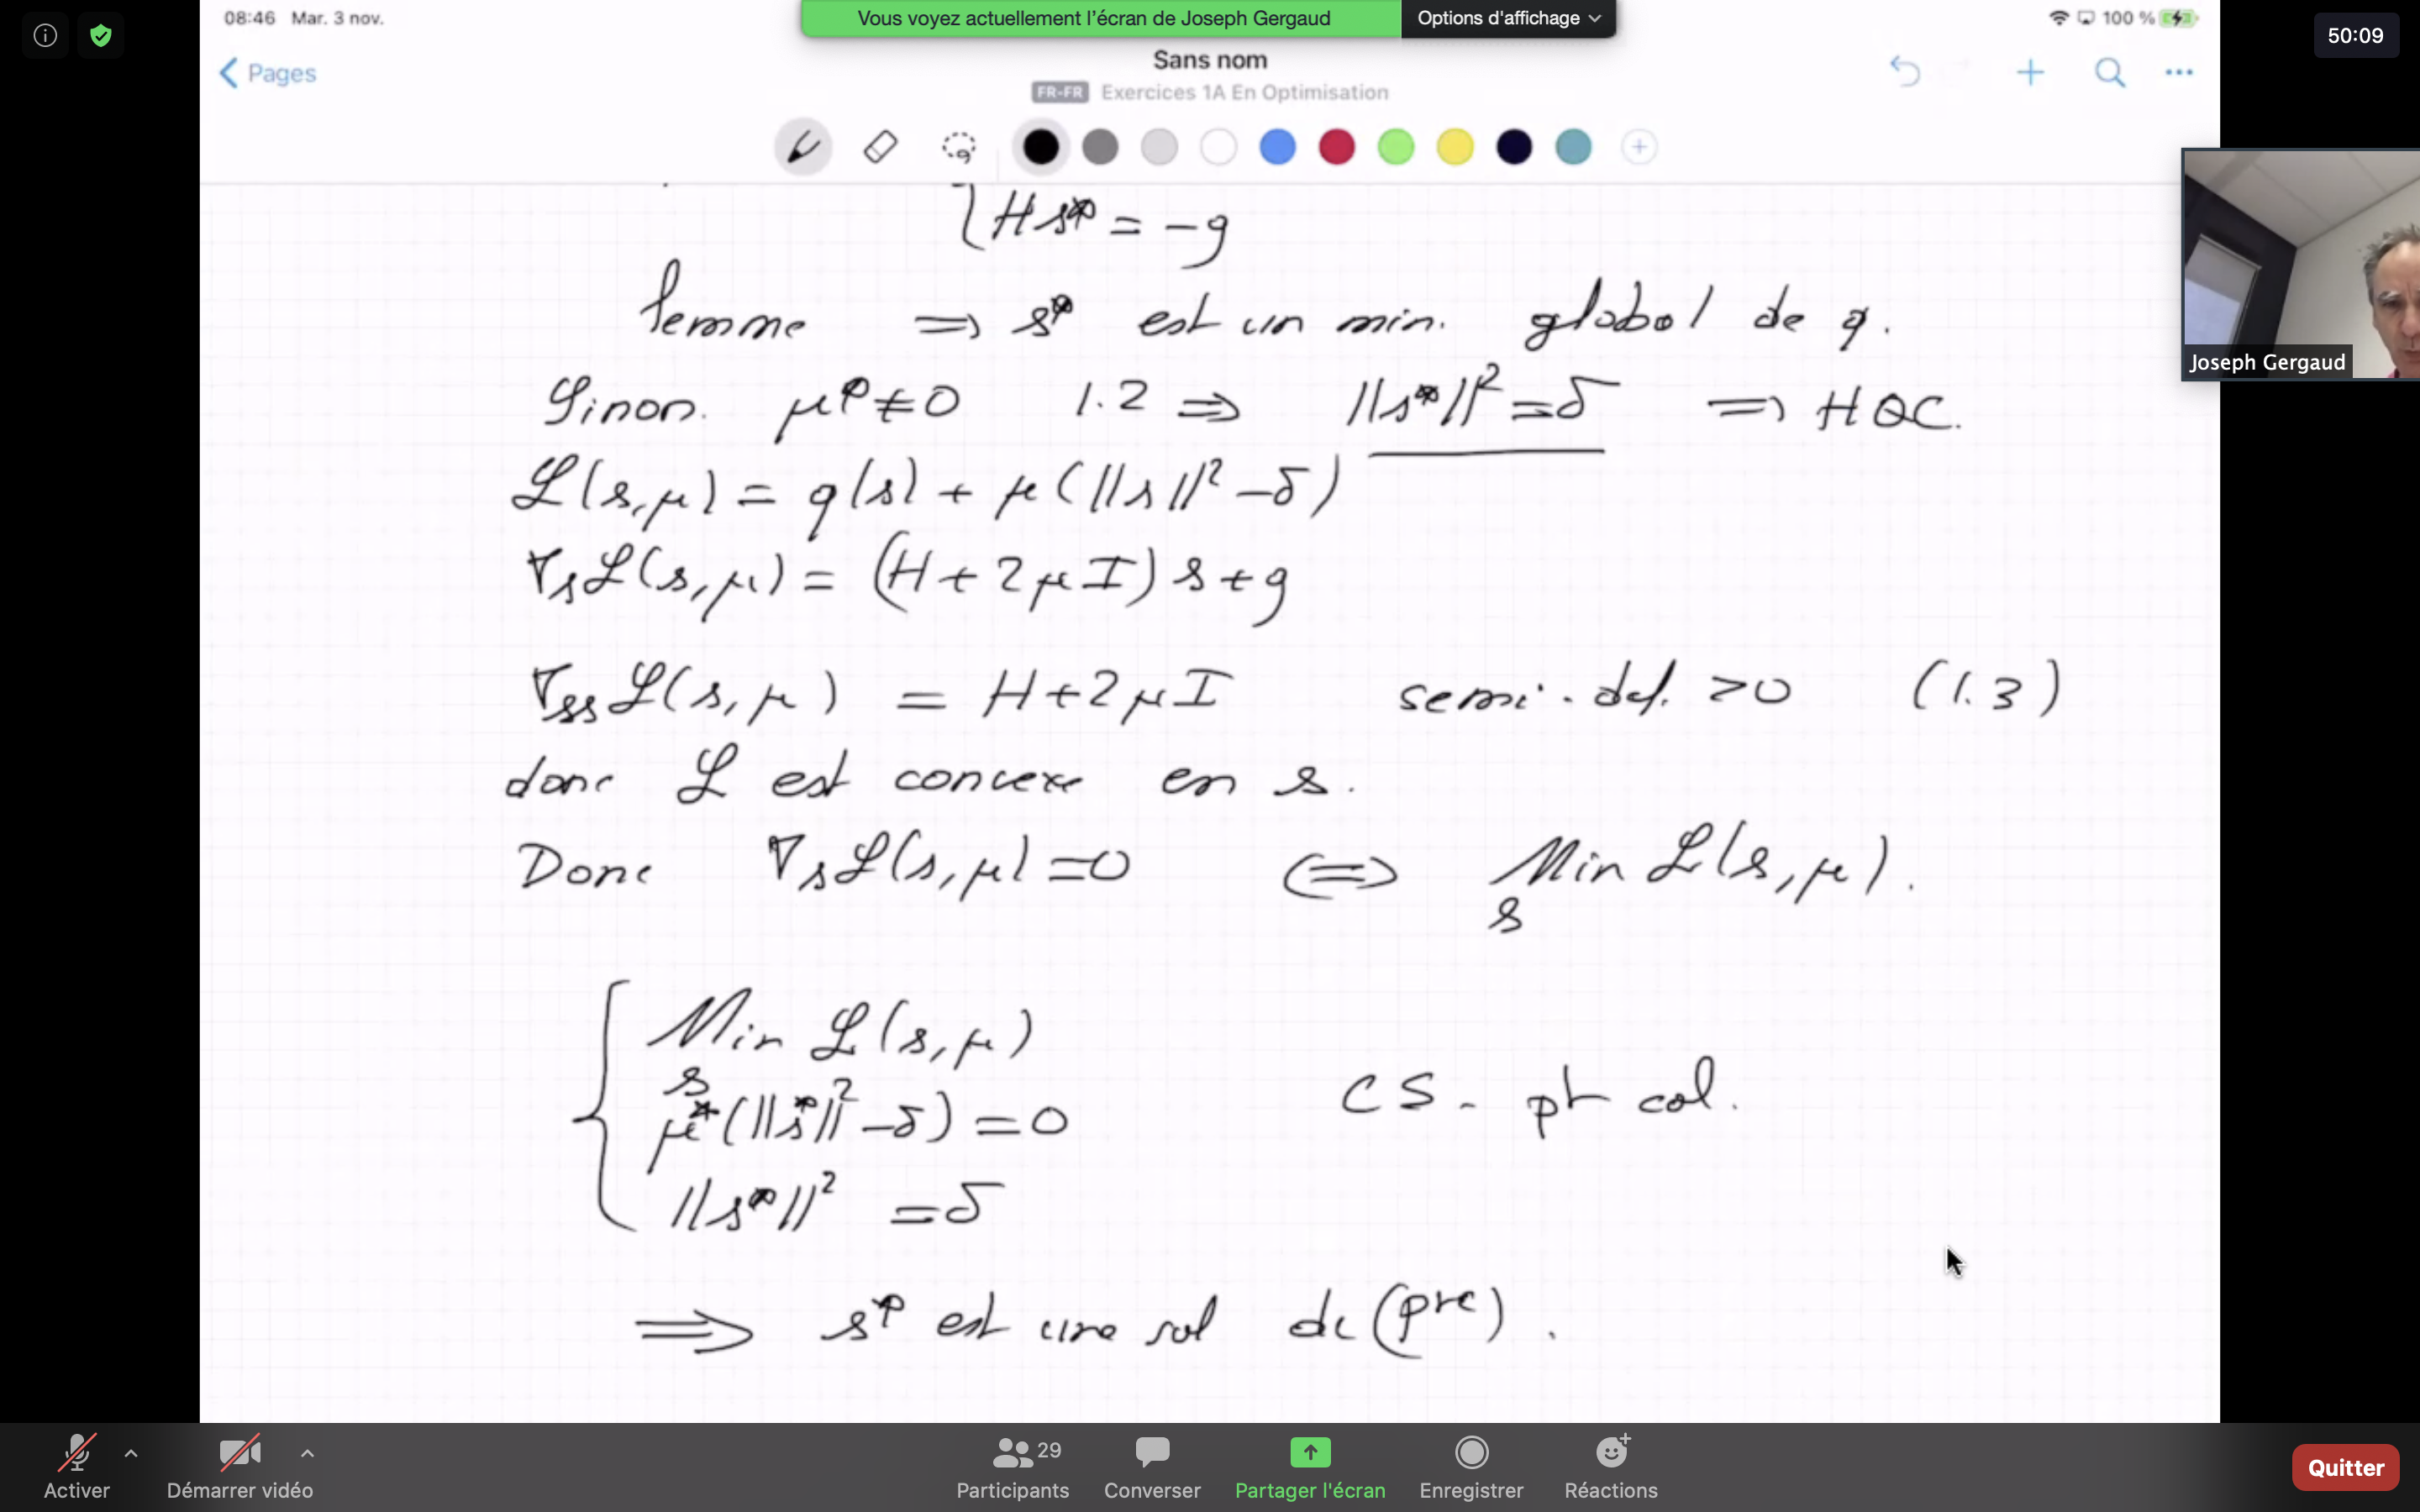 08:46 Mar. 3 nov.
Vous voyez actuellement l'écran de Joseph Gergaud
Options d'affichage
100 %
50:09
Pages
Sans nom
FR-FR Exercices 1A En Optimisation
{ Hs* = -g
Joseph Gergaud
lemme ⟹ s* est un min. global de q.
Sinon. μ* ≠ 0 1.2 ⟹ ||s*||² = δ ⟹ HQC.
ℒ(s, μ) = q(s) + μ(||s||² - δ)
∇sℒ(s, μ) = (H + 2μI) s + g
∇ssℒ(s, μ) = H + 2μI semi-def. >0 (1.3)
donc ℒ est convexe en s.
Donc ∇sℒ(s, μ) = 0 ⟺ Min ℒ(s, μ).
s
{ Min ℒ(s, μ)
s
μ*(||s*||² - δ) = 0 CS - pt col.
||s*||² = δ
⟹ s* est une sol de (pre).
Activer
Démarrer vidéo
Participants 29
Converser
Partager l'écran
Enregistrer
Réactions
Quitter